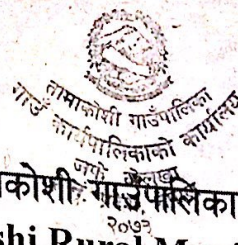 तामाकोशी गाउँपालिका
गाउँ कार्यपालिकाको कार्यालय
कोशी गाउँपालिका
२०७३
shi Rural